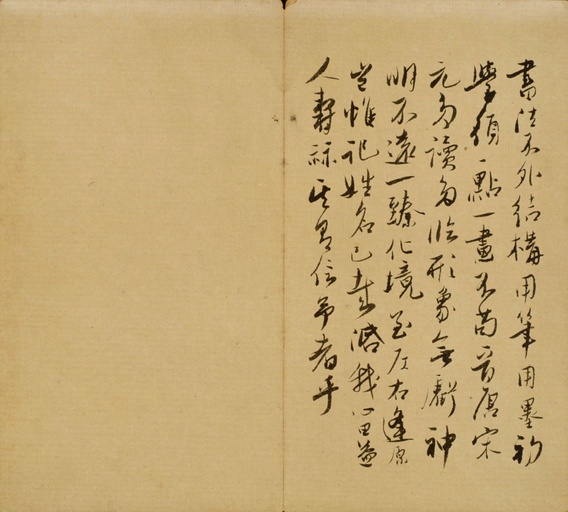 書法不外結構用筆用墨初
學須一點一畫不苟晉唐宋
元多讀多臨形象無虧神
明不遠一臻化境至左右逢原
豈惟記姓名已哉濬我心田益
人壽祺其有信予者乎